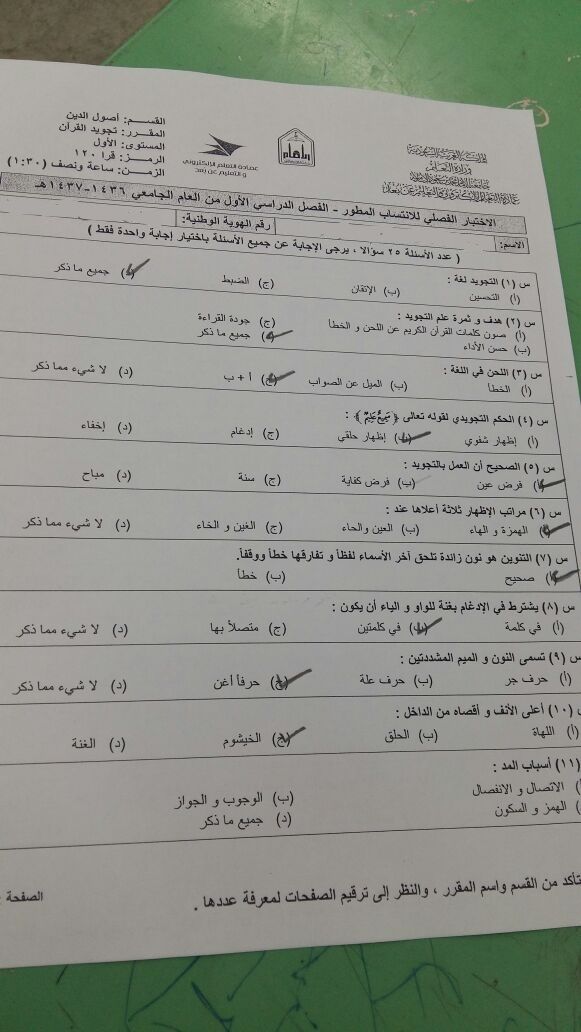 المملكة العربية السعودية
وزارة التعليم
القســم: أصول الدين
المقـرر: تجويد القرآن
المستوى: الأول
الرمـز: قرا ١٢٠
الزمـن: ساعة ونصف (١:٣٠)
عمادة التعلم الإلكتروني
و التعليم عن بعد
الاختبار الفصلي للانتساب المطور - الفصل الدراسي الأول من العام الجامعي ١٤٣٦-١٤٣٧هـ
الاسم: رقم الهوية الوطنية:
( عدد الأسئلة ٢٥ سؤالا ، يرجى الإجابة عن جميع الأسئلة باختيار إجابة واحدة فقط )
س (١) التجويد لغة :
(أ) التحسين (ب) الإتقان (ج) الضبط (د) جميع ما ذكر
س (٢) هدف و ثمرة علم التجويد :
(أ) صون كلمات القرآن الكريم عن اللحن و الخطأ (ج) جودة القراءة
(ب) حسن الأداء (د) جميع ما ذكر
س (٣) اللحن في اللغة :
(أ) الخطأ (ب) الميل عن الصواب (ج) أ + ب (د) لا شيء مما ذكر
س (٤) الحكم التجويدي لقوله تعالى ﴿ سَمِيعٌ عَلِيمٌ ﴾ :
(أ) إظهار شفوي (ب) إظهار حلقي (ج) إدغام (د) إخفاء
س (٥) الصحيح أن العمل بالتجويد :
(أ) فرض عين (ب) فرض كفاية (ج) سنة (د) مباح
س (٦) مراتب الإظهار ثلاثة أعلاها عند :
(أ) الهمزة و الهاء (ب) العين والحاء (ج) الغين و الخاء (د) لا شيء مما ذكر
س (٧) التنوين هو نون زائدة تلحق آخر الأسماء لفظاً و تفارقها خطاً ووقفاً.
(أ) صحيح (ب) خطأ
س (٨) يشترط في الإدغام بغنة للواو و الياء أن يكون :
(أ) في كلمة (ب) في كلمتين (ج) متصلاً بها (د) لا شيء مما ذكر
س (٩) تسمى النون و الميم المشددتين :
(أ) حرف جر (ب) حرف علة (ج) حرفا أغن (د) لا شيء مما ذكر
(١٠) أعلى الأنف و أقصاه من الداخل :
(أ) اللهاة (ب) الحلق (ج) الخيشوم (د) الغنة
(١١) أسباب المد :
الاتصال و الانفصال (ب) الوجوب و الجواز
الهمز و السكون (د) جميع ما ذكر
تأكد من القسم واسم المقرر ، والنظر إلى ترقيم الصفحات لمعرفة عددها .
الصفحة